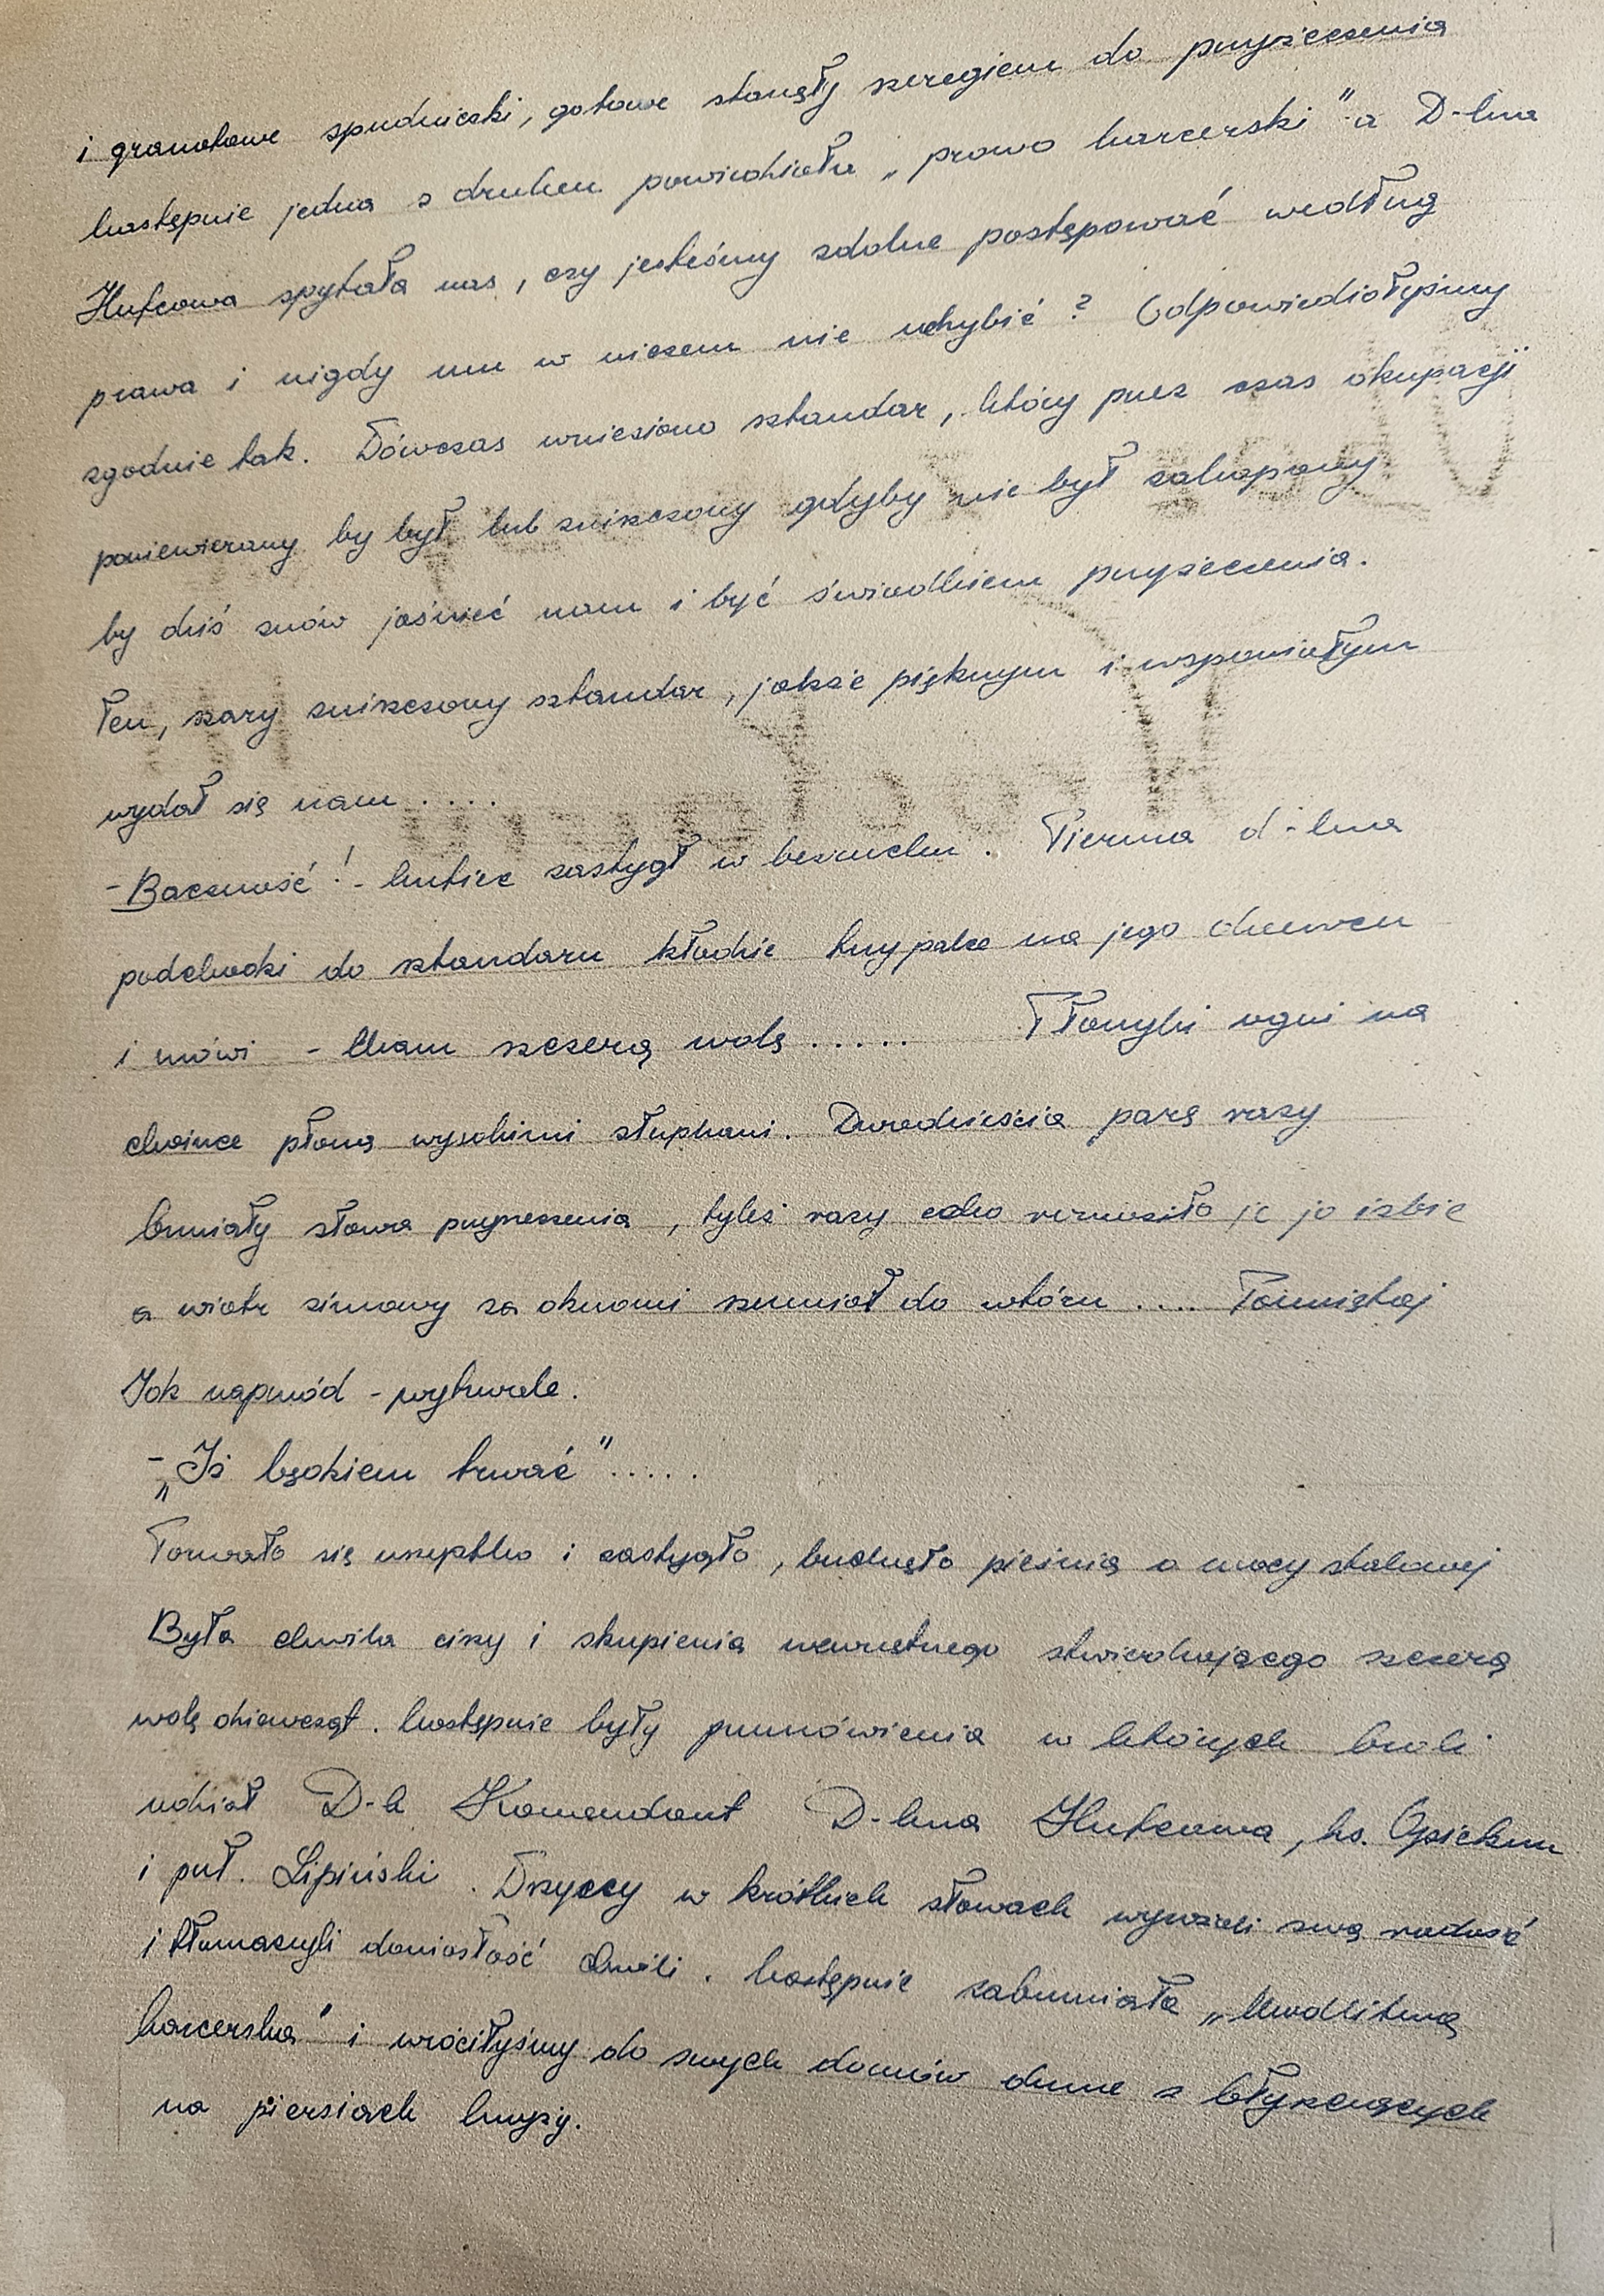 i granatowe spódniczki, gotowe stanęły szeregiem do przyżeczenia
Następnie jedna z druhen powiedziała „prawo harcerski" a D-hna
Hufcowa spytała nas, czy jesteśmy zdolne postępować według
prawa i nigdy mu w niczem nie uchybić? Odpowiedziałyśmy
zgodnie tak. Wówczas wniesiono sztandar, który przez czas okupacji
poniewierany by był lub zniszczony gdyby nie był zakopany
by dziś znów jaśnieć nam i być świadkiem przyżeczenia.
Ten, szary zniszczony sztandar, jakże pięknym i wspaniałym
wydał się nam ....
- Baczność! - hufiec zastygł w bezruchu. Pierwsza d-hna
podchodzi do sztandaru kładzie trzy palce na jego drzewcu
i mówi - Mam szczerą wolę ..... Płomyki ogni na
choince płoną wysokimi słupkami. Dwadzieścia parę razy
brzmiały słowa przyrzeczenia, tyleż razy echo roznosiło je po izbie
a wiatr zimowy za oknami szumiał do wtóru .... Pamiętaj
Iść naprzód - wytrwale.
- „Iż będziem trwać".....
Porwało się wszystko i zastygło, buchnęło pieśnią o mocy stalowej
Była chwila ciszy i skupienia wewnętrznego stwierdzającego szczerą
wolę dziewcząt. Następnie były przemówienia w których brali
udział D-h Komendant D-hna Hufcowa, ks. Opiekun
i puł. Lipiński. Wszyscy w krótkich słowach wyrazili swą radość
i tłomaczyli doniosłość chwili. Następnie zabrzmiała „Modlitwa
harcerska" i wróciłyśmy do swych domów dumne z błyszczących
na piersiach krzyży.